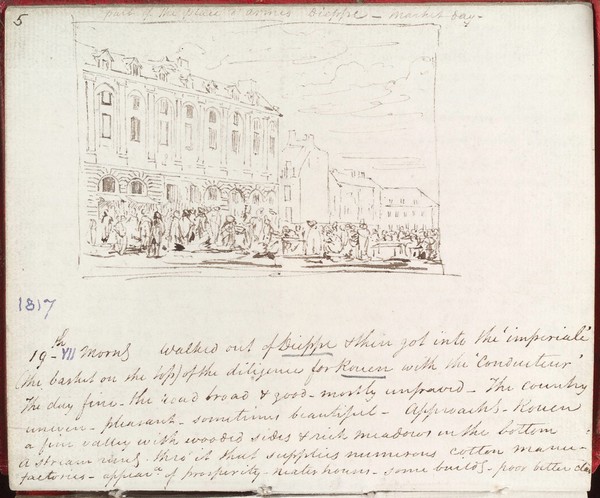 5
part of the place d'armes Dieppe - market day -
1817
19th VII Morng Walked out of Dieppe & then got into the 'imperiale'
(the basket on the top) of the diligence for Rouen with the 'Conducteur'
The day fine - the road broad & good - mostly unpaved - The country
uneven - pleasant - sometimes beautiful - Approachg - Rouen
a fine valley with wooded sides & rich meadows in the bottom
A stream runs thro' it that supplies numerous cotton manu-
factories - appeara of prosperity - neater houses - some buildg - poor better clo